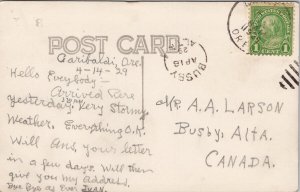 POST CARD
Garibaldi, Ore.
4-14-29
Hello Everybody:-
Arrived here
yesterday. Very Stormy
Weather. Everything O.K.
Will Ans, your letter
in a few days. Will then
give you My Address.
Bye Bye as Ever
Mr. A. A. LARSON
Busby, Alta.
CANADA.
BUSBY
ALTA
1 CENT 1